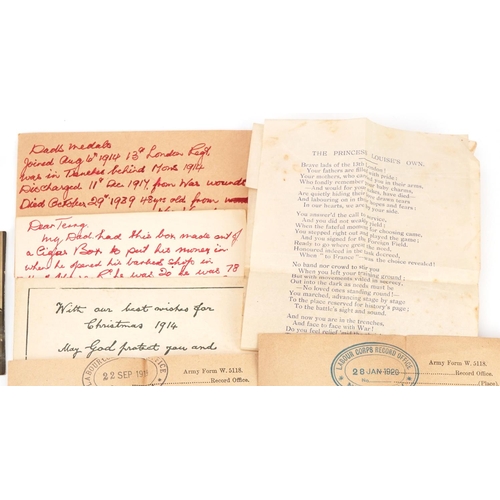 Dad's medals
Joined Aug 6th 1914 13th London Regt
was in Trenches behind Mons 1914
Discharged 11th Dec. 1917 from War wounds
Died October 29th 1939 48yrs old from
Dear Terry,
My Dad had this box made out of
a Cigar Box to put his money in
when he opened his barbers Shop in
he was 20 he was 78
With our best wishes for
Christmas 1914
May God protect you and
THE PRINCESS LOUISE'S OWN.
Brave lads of the 13th London!
Your fathers are filled with pride;
Your mothers, who held you in their arms,
Who fondly remember your baby charms,
And would for your sakes, have died,
Are quietly hiding their unshed tears
And labouring on in their hopes and fears:
In our hearts, we are by your side.
You answer'd the call to service,
And you did not wait to
When the fateful moment for choosing came,
You stepped right out and played the game;
And you signed for the Foreign Field.
Ready to go where great the need,
Honoured indeed in the lot decreed,
When "to France" was the choice revealed!
No band nor crowd to
When you left your training ground;
But with monuments
Out into the dark as
No loved ones standing round!
You marched, advancing stage by stage
To the place reserved for history's page;
To the battle's sight and sound.
And now you are in the trenches,
And face to face with War!
Do you feel
22 SEP 191
Army Form W. 5118.
Record Office.
LABOUR CORPS RECORD OFFICE
28 JAN 1920
Army Form W. 5118.
Record Office.
(Place).